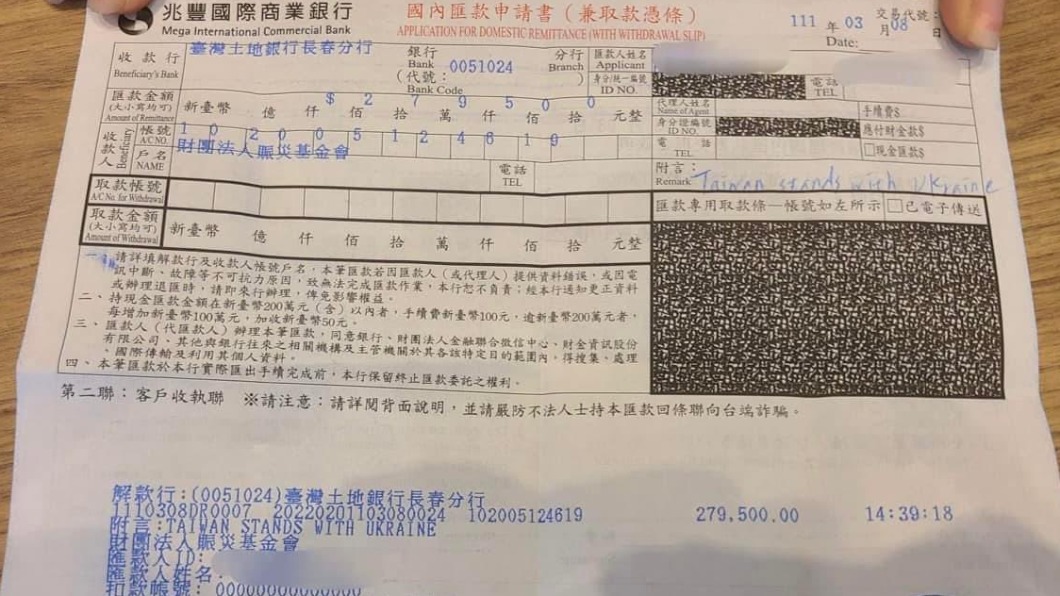 兆豐國際商業銀行
Mega International Commercial Bank
國內匯款申請書（兼取款憑條）
APPLICATION FOR DOMESTIC REMITTANCE (WITH WITHDRAWAL SLIP)
交易代號：
111 年 03 月 08 日
Date:
收款行
Beneficiary's Bank
臺灣土地銀行長春分行
銀行
Bank
(代號：
Bank Code
0051024
分行
Branch
)
匯款人姓名
Applicant
身分/統一編號
ID NO.
電話
TEL
匯款金額
(大小寫均可)
Amount of Remittance
新臺幣 億 仟 佰 拾 萬 仟 佰 拾 元整
$ 2 7 9 5 0 0
代理人姓名
Name of Agent
手續費$
收款人
Beneficiary
帳號
A/C NO.
1 0 2 0 0 5 1 2 4 6 1 9
身分證編號
ID NO.
應付財金款$
戶名
NAME
財團法人賑災基金會
電話
TEL
電話
TEL
□現金匯款$
附言：
Remark
Taiwan stands with Ukraine
取款帳號
A/C No. for Withdrawal
匯款專用取款條—帳號如左所示
□已電子傳送
取款金額
(大小寫均可)
Amount of Withdrawal
新臺幣 億 仟 佰 拾 萬 仟 佰 拾 元整
請詳填解款行及收款人帳號戶名，本筆匯款若因匯款人（或代理人）提供資料錯誤，或因電
訊中斷、故障等不可抗力原因，致無法完成匯款作業，本行恕不負責；經本行通知更正資料
或辦理退匯時，請即來行辦理，俾免影響權益。
二、持現金匯款金額在新臺幣200萬元（含）以內者，手續費新臺幣100元，逾新臺幣200萬元者，
每增加新臺幣100萬元，加收新臺幣50元。
三、匯款人（代匯款人）辦理本筆匯款，同意銀行、財團法人金融聯合徵信中心、財金資訊股份
有限公司、其他與銀行往來之相關機構及主管機關於其各該特定目的範圍內，得搜集、處理
、國際傳輸及利用其個人資料。
四、本筆匯款於本行實際匯出手續完成前，本行保留終止匯款委託之權利。
第二聯：客戶收執聯 ※請注意：請詳閱背面說明，並請嚴防不法人士持本匯款回條聯向台端詐騙。
解款行:(0051024)臺灣土地銀行長春分行
1110308DR0007 20220201103080024 102005124619 279,500.00 14:39:18
附言:TAIWAN STANDS WITH UKRAINE
財團法人賑災基金會
匯款人ID:
匯款人姓名:
扣款帳號: 00000000000000